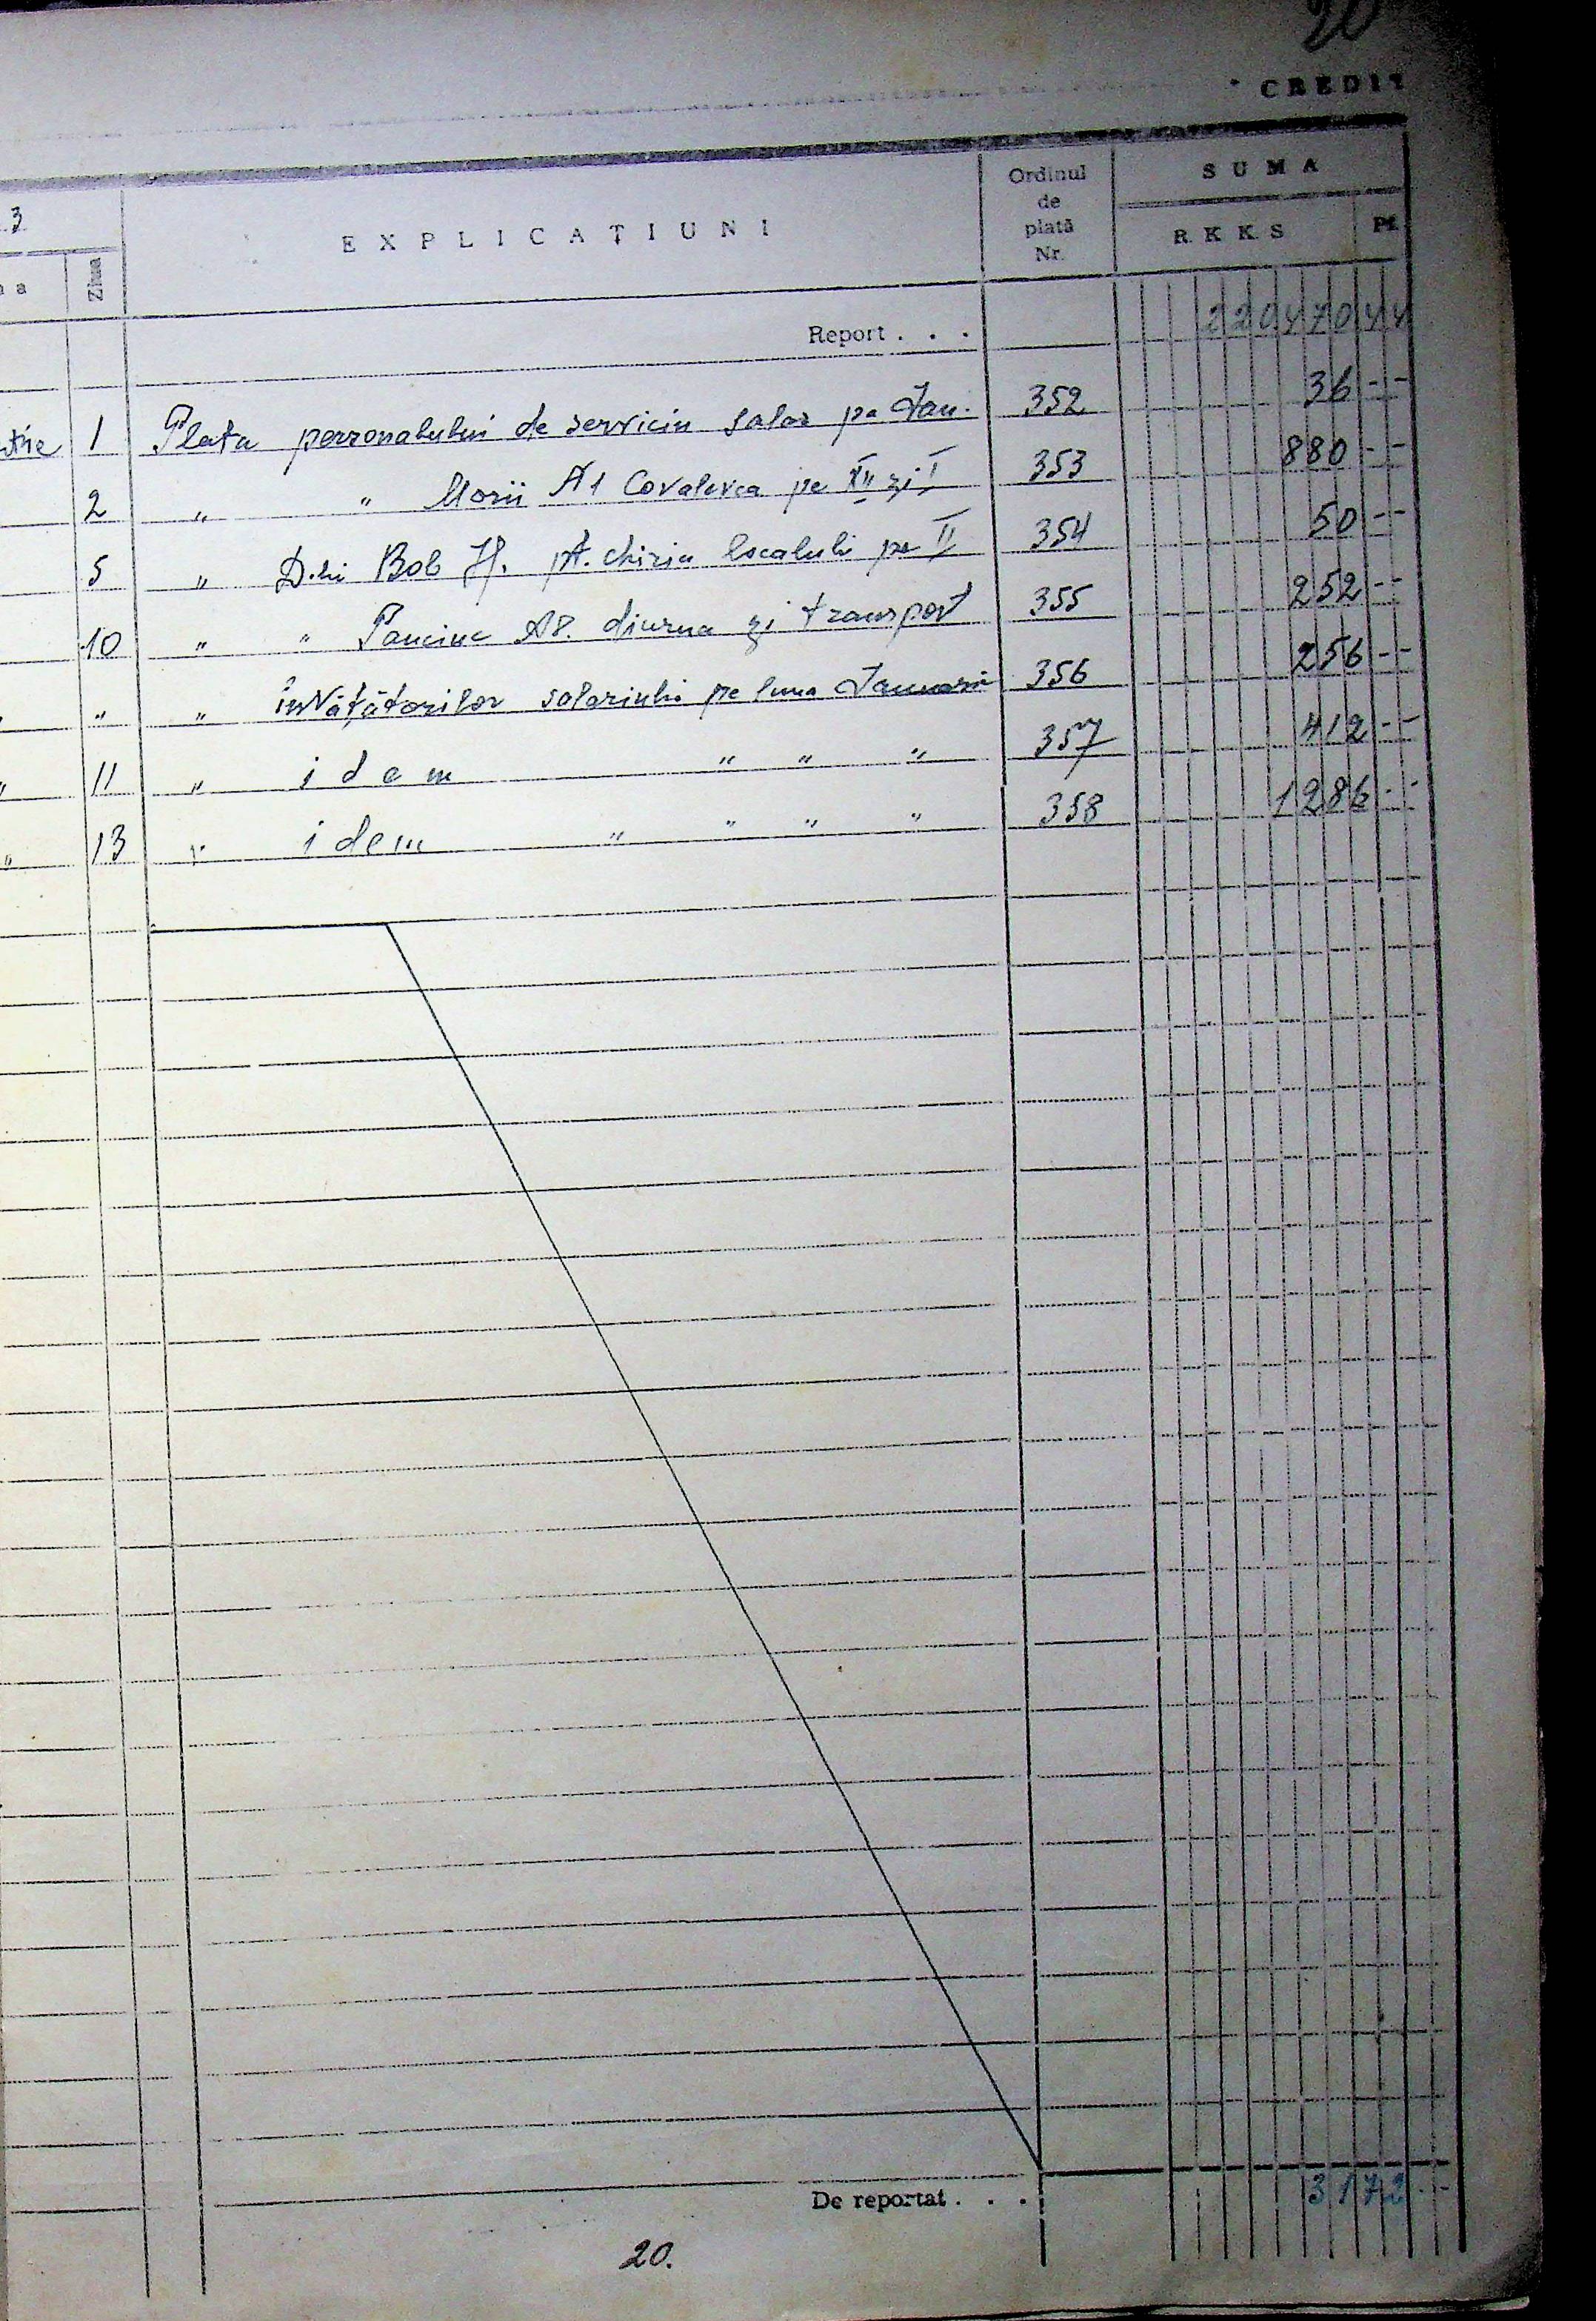 20
CREDIT
3
EXPLICAȚIUNI
Ordinul de plată Nr.
SUMA
R. K. K. S Pf.
Ziua
Report . . . 220.470 44
1 Plata personalului de serviciu salar pe Ian. 352 36 --
2 " " Morii A1 Covalevca pe XII și I 353 880 --
5 " D-lui Bob H. pt. chiria localului pe II 354 50 --
10 " " diurna și transport 355 252 --
" " " învățătorilor salariului pe luna Ianuarie 356 256 --
" 11 " idem " " " 357 412 --
" 13 " idem " " " " 358 1286 --
De reportat . . . 3172 --
20.